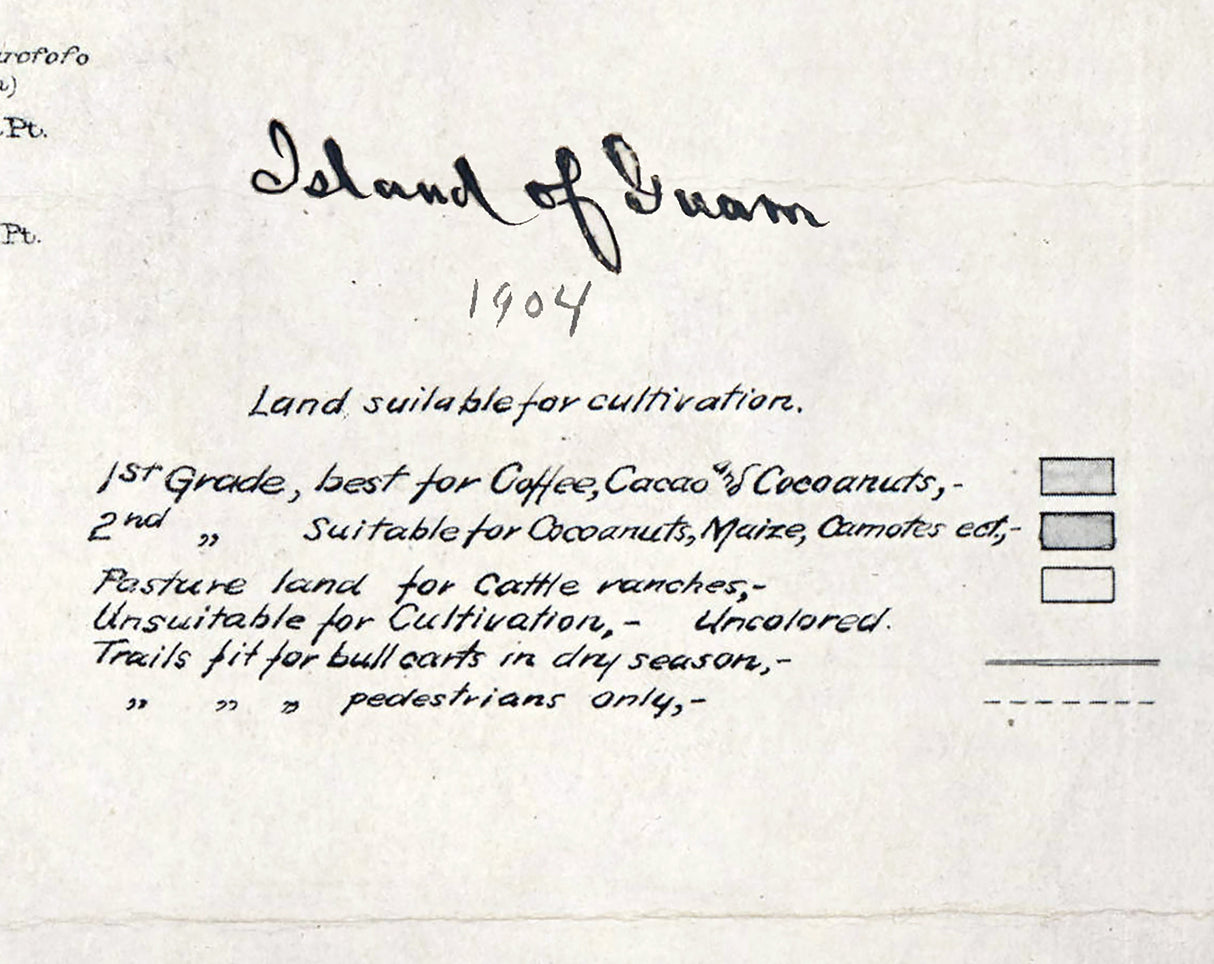 rofofo
)
Pt.
Pt.
Island of Guam
1904
Land suitable for cultivation.
1st Grade, best for Coffee, Cacao and Cocoanuts,-
2nd „ Suitable for Cocoanuts, Maize, Camotes ect.,-
Pasture land for Cattle ranches,-
Unsuitable for Cultivation,- Uncolored.
Trails fit for bull carts in dry season,-
„ „ „ pedestrians only,-